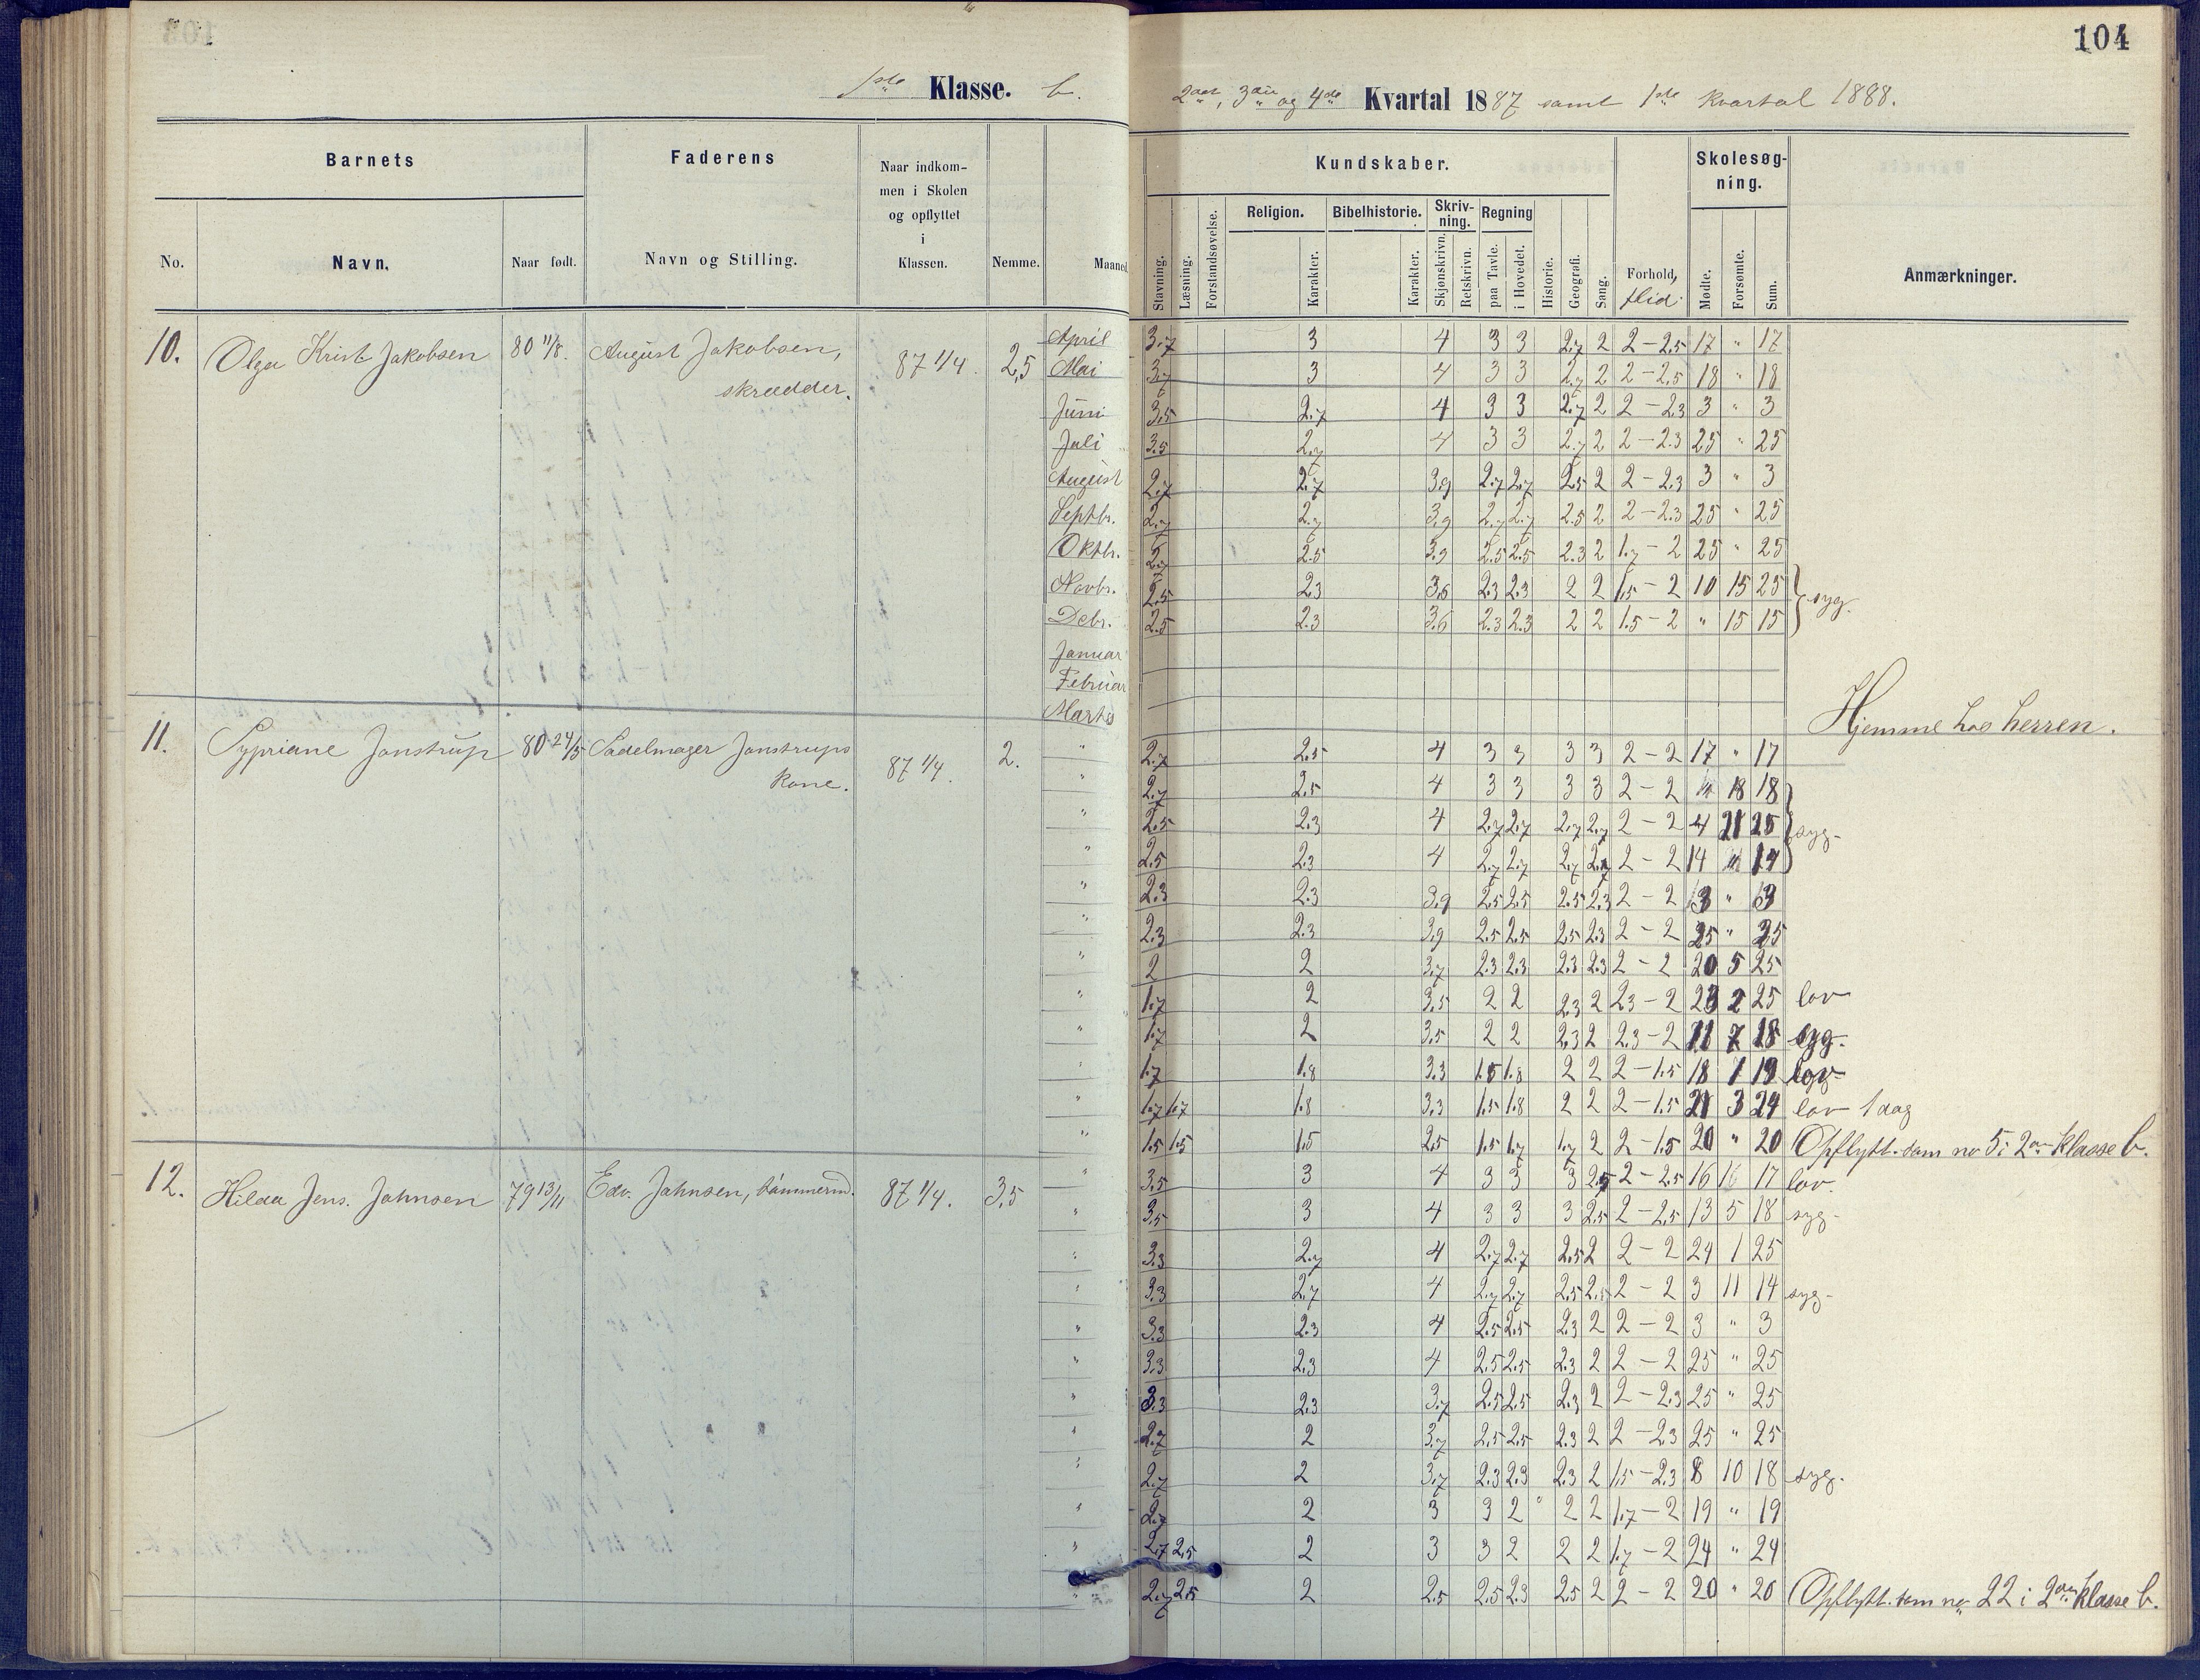 104
1ste Klasse. b. 2det, 3die og 4de Kvartal 1887 samt 1ste Kvartal 1888.
Barnets Faderens Naar indkommen i Skolen og opflyttet i Klassen. Nemme. Maaned Kundskaber. Forhold, flid. Skolesøgning. Anmærkninger.
No. Navn. Naar født. Navn og Stilling. Stavning. Læsning. Forstandsøvelse. Religion. Karakter. Bibelhistorie. Karakter. Skrivning. Skjønskrivn. Retskrivn. Regning paa Tavle. i Hovedet. Historie. Geografi. Sang. Mødte. Forsømte. Sum.
10. Olga Krist. Jakobsen 80 11/8. August Jakobsen, skrædder. 87 1/4. 2,5
April 3.7 3 4 3 3 2.7 2 2-2.5 17 " 17
Mai 3.7 3 4 3 3 2.7 2 2-2.5 18 " 18
Juni 3.5 2.7 4 3 3 2.7 2 2-2.3 3 " 3
Juli 3.5 2.7 4 3 3 2.7 2 2-2.3 25 " 25
August 2.7 2.7 3.9 2.7 2.7 2.5 2 2-2.3 3 " 3
Septbr. 2.7 2.7 3.9 2.7 2.7 2.5 2 2-2.3 25 " 25
Oktbr. 2.7 2.5 3.9 2.5 2.5 2.3 2 1.7-2 25 " 25
Novbr. 2.5 2.3 3.6 2.3 2.3 2 2 1.5-2 10 15 25 syg.
Debr. 2.5 2.3 3.6 2.3 2.3 2 2 1.5-2 " 15 15
Januar
Februar
Marts Hjemme hos herren.
11. Sypriane Jonstrup 80 24/5 Sadelmager Jonstrups kone. 87 1/4. 2.
" 2.7 2.5 4 3 3 3 3 2-2 17 " 17
" 2.7 2.5 4 3 3 3 3 2-2 18 18
" 2.5 2.3 4 2.7 2.7 2.7 2.7 2-2 4 21 25 syg.
" 2.5 2.3 4 2.7 2.7 2.7 2.7 2-2 14 14
" 2.3 2.3 3.9 2.5 2.5 2.5 2.3 2-2 3 " 3
" 2.3 2.3 3.9 2.5 2.5 2.5 2.3 2-2 25 " 25
" 2 2 3.7 2.3 2.3 2.3 2.3 2-2 20 5 25
" 1.7 2 3.5 2 2 2.3 2 2.3-2 23 2 25 lov
" 1.7 2 3.5 2 2 2.3 2 2.3-2 11 7 18 syg.
" 1.7 1.8 3.3 1.5 1.8 2 2 2-1.5 18 1 19 lov
" 1.7 1.7 1.8 3.3 1.5 1.8 2 2 2-1.5 21 3 24 lov 1 dag
" 1.5 1.5 1.5 2.5 1.5 1.7 1.7 2 2-1.5 20 " 20 Opflytt. som no 5 i 2den klasse b.
12. Hilda Jens. Johnsen 79 13/11 Edv. Johnsen, tømmermd. 87 1/4. 3,5
" 3.5 3 4 3 3 3 2.5 2-2.5 16 17 lov.
" 3.5 3 4 3 3 3 2.5 2-2.5 13 5 18 syg.
" 3.3 2.7 4 2.7 2.7 2.5 2 2-2 24 1 25
" 3.3 2.7 4 2.7 2.7 2.5 2-2 3 11 14 syg.
" 3.3 2.3 4 2.5 2.5 2.3 2 2-2 3 " 3
" 3.3 2.3 4 2.5 2.5 2.3 2 2-2 25 " 25
" 3.3 2.3 3.7 2.5 2.5 2.3 2 2-2.3 25 " 25
" 2.7 2 3.7 2.5 2.5 2.3 2 2-2.3 25 " 25
" 2.7 2 3.7 2.3 2.3 2.3 2 1.5-2.3 8 10 18 syg.
" 2.7 2 3 3 2 2 2 1.7-2 19 " 19
" 2.7 2.5 2 3 3 2 2 2 1.7-2 24 " 24
" 2.7 2.5 2 2.5 2.5 2.3 2.5 2 2-2 20 " 20 Opflytt. som no 22 i 2den klasse b.